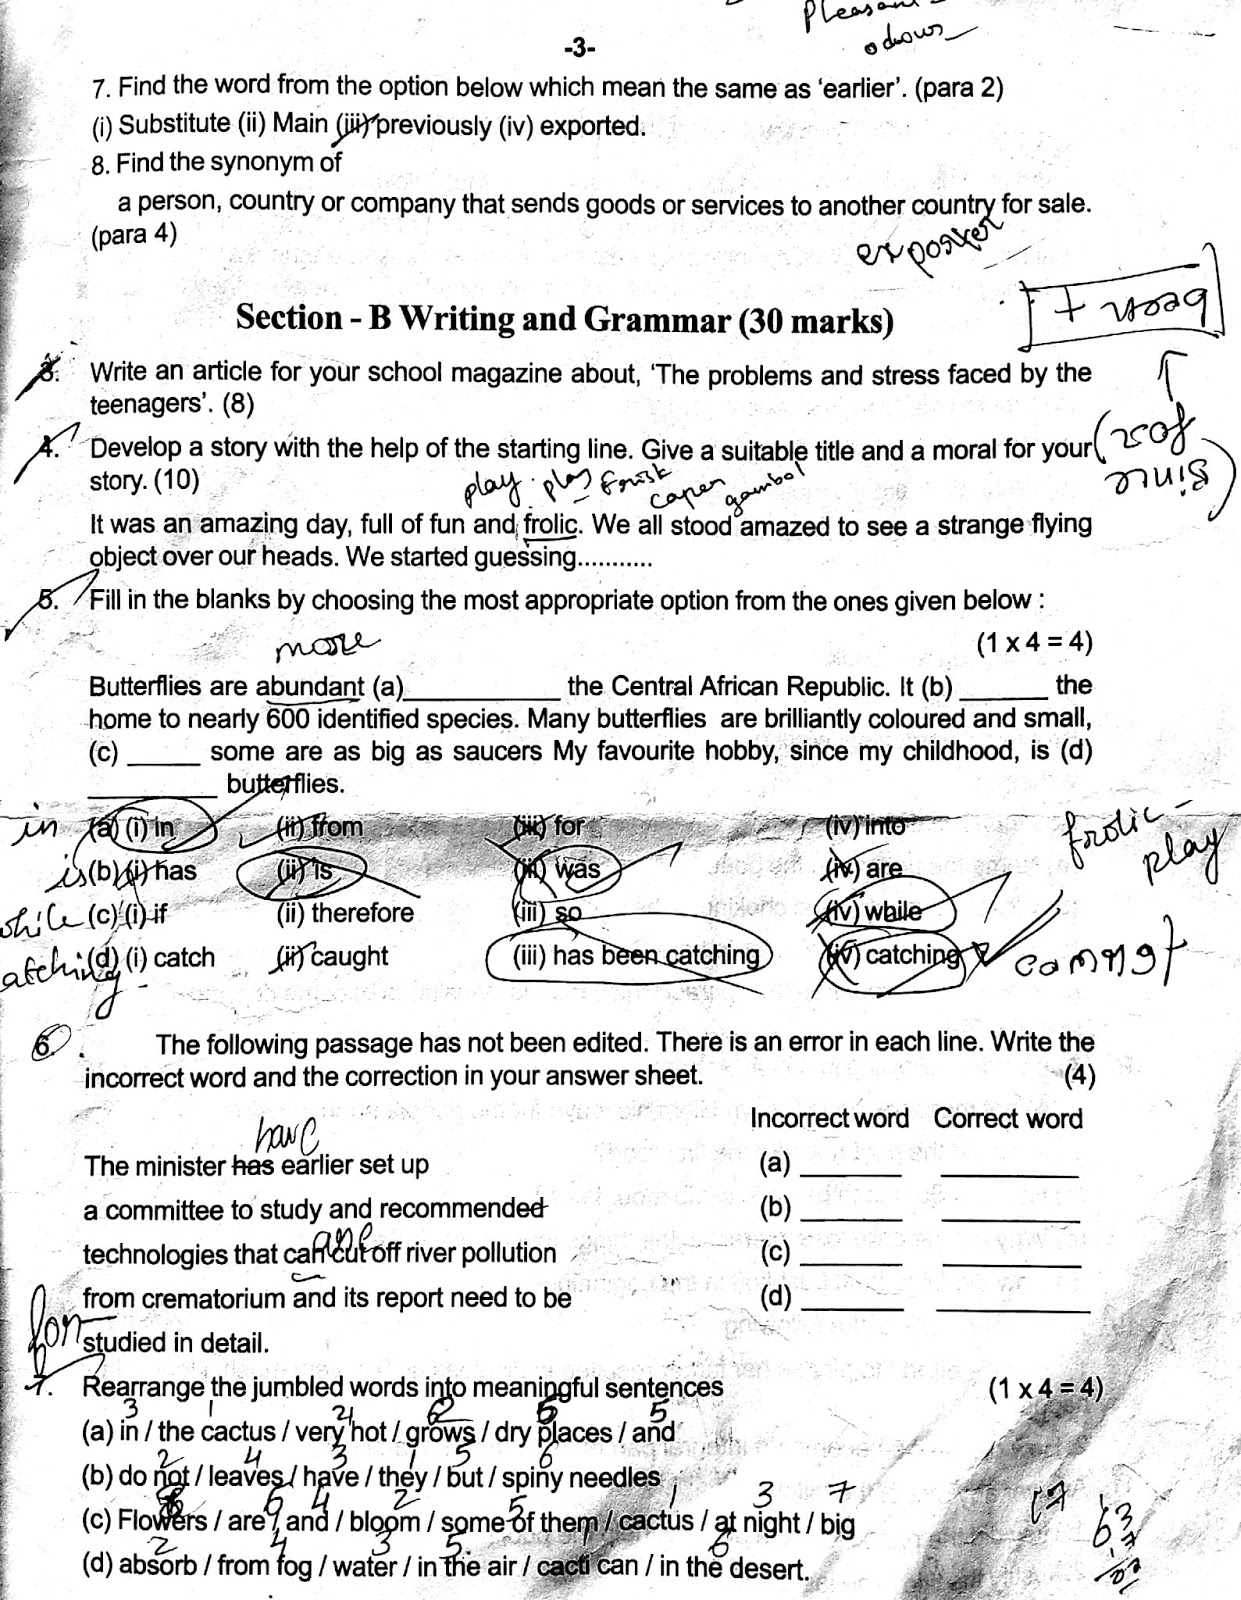 Pleasant
odours
-3-
7. Find the word from the option below which mean the same as 'earlier'. (para 2)
(i) Substitute (ii) Main (iii) previously (iv) exported.
8. Find the synonym of
a person, country or company that sends goods or services to another country for sale.
(para 4)
exporter
Section - B Writing and Grammar (30 marks)
been +
3. Write an article for your school magazine about, 'The problems and stress faced by the
teenagers'. (8)
4. Develop a story with the help of the starting line. Give a suitable title and a moral for your
story. (10)
for
since
play play frisk
caper gambol
It was an amazing day, full of fun and frolic. We all stood amazed to see a strange flying
object over our heads. We started guessing...........
5. Fill in the blanks by choosing the most appropriate option from the ones given below :
(1 x 4 = 4)
more
Butterflies are abundant (a)___________ the Central African Republic. It (b) ______ the
home to nearly 600 identified species. Many butterflies are brilliantly coloured and small,
(c) _____ some are as big as saucers My favourite hobby, since my childhood, is (d)
_________ butterflies.
in (a) (i) in (ii) from (iii) for (iv) into
is (b) (i) has (ii) is (iii) was (iv) are
while (c) (i) if (ii) therefore (iii) so (iv) while
catching (d) (i) catch (ii) caught (iii) has been catching (iv) catching
frolic -
play
6. The following passage has not been edited. There is an error in each line. Write the
incorrect word and the correction in your answer sheet. (4)
Incorrect word Correct word
have
The minister has earlier set up (a) _______ _________
a committee to study and recommended (b) _______ _________
technologies that can cut off river pollution (c) _______ _________
from crematorium and its report need to be (d) _______ _________
for
studied in detail.
7. Rearrange the jumbled words into meaningful sentences (1 x 4 = 4)
3 1 4 2 6 5
(a) in / the cactus / very hot / grows / dry places / and
2 4 3 1 5 6
(b) do not / leaves / have / they / but / spiny needles
6 4 2 5 1 3 7
(c) Flowers / are / and / bloom / some of them / cactus / at night / big
2 4 3 5 6
(d) absorb / from fog / water / in the air / cacti can / in the desert.